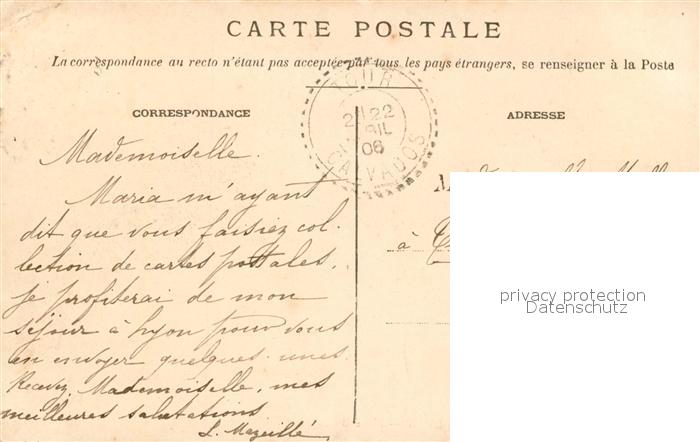 CARTE POSTALE
La correspondance au recto n'étant pas acceptée par tous les pays étrangers, se renseigner à la Poste
CORRESPONDANCE
ADRESSE
TOUR
22
06
CALVADOS
Mademoiselle.
Maria m'ayant
dit que vous faisiez col-
lection de cartes postales,
je profiterai de mon
séjour à Lyon pour vous
en envoyer quelques-unes.
Recevez, Mademoiselle, mes
meilleures salutations
L. Mazeillé
à
privacy protection
Datenschutz